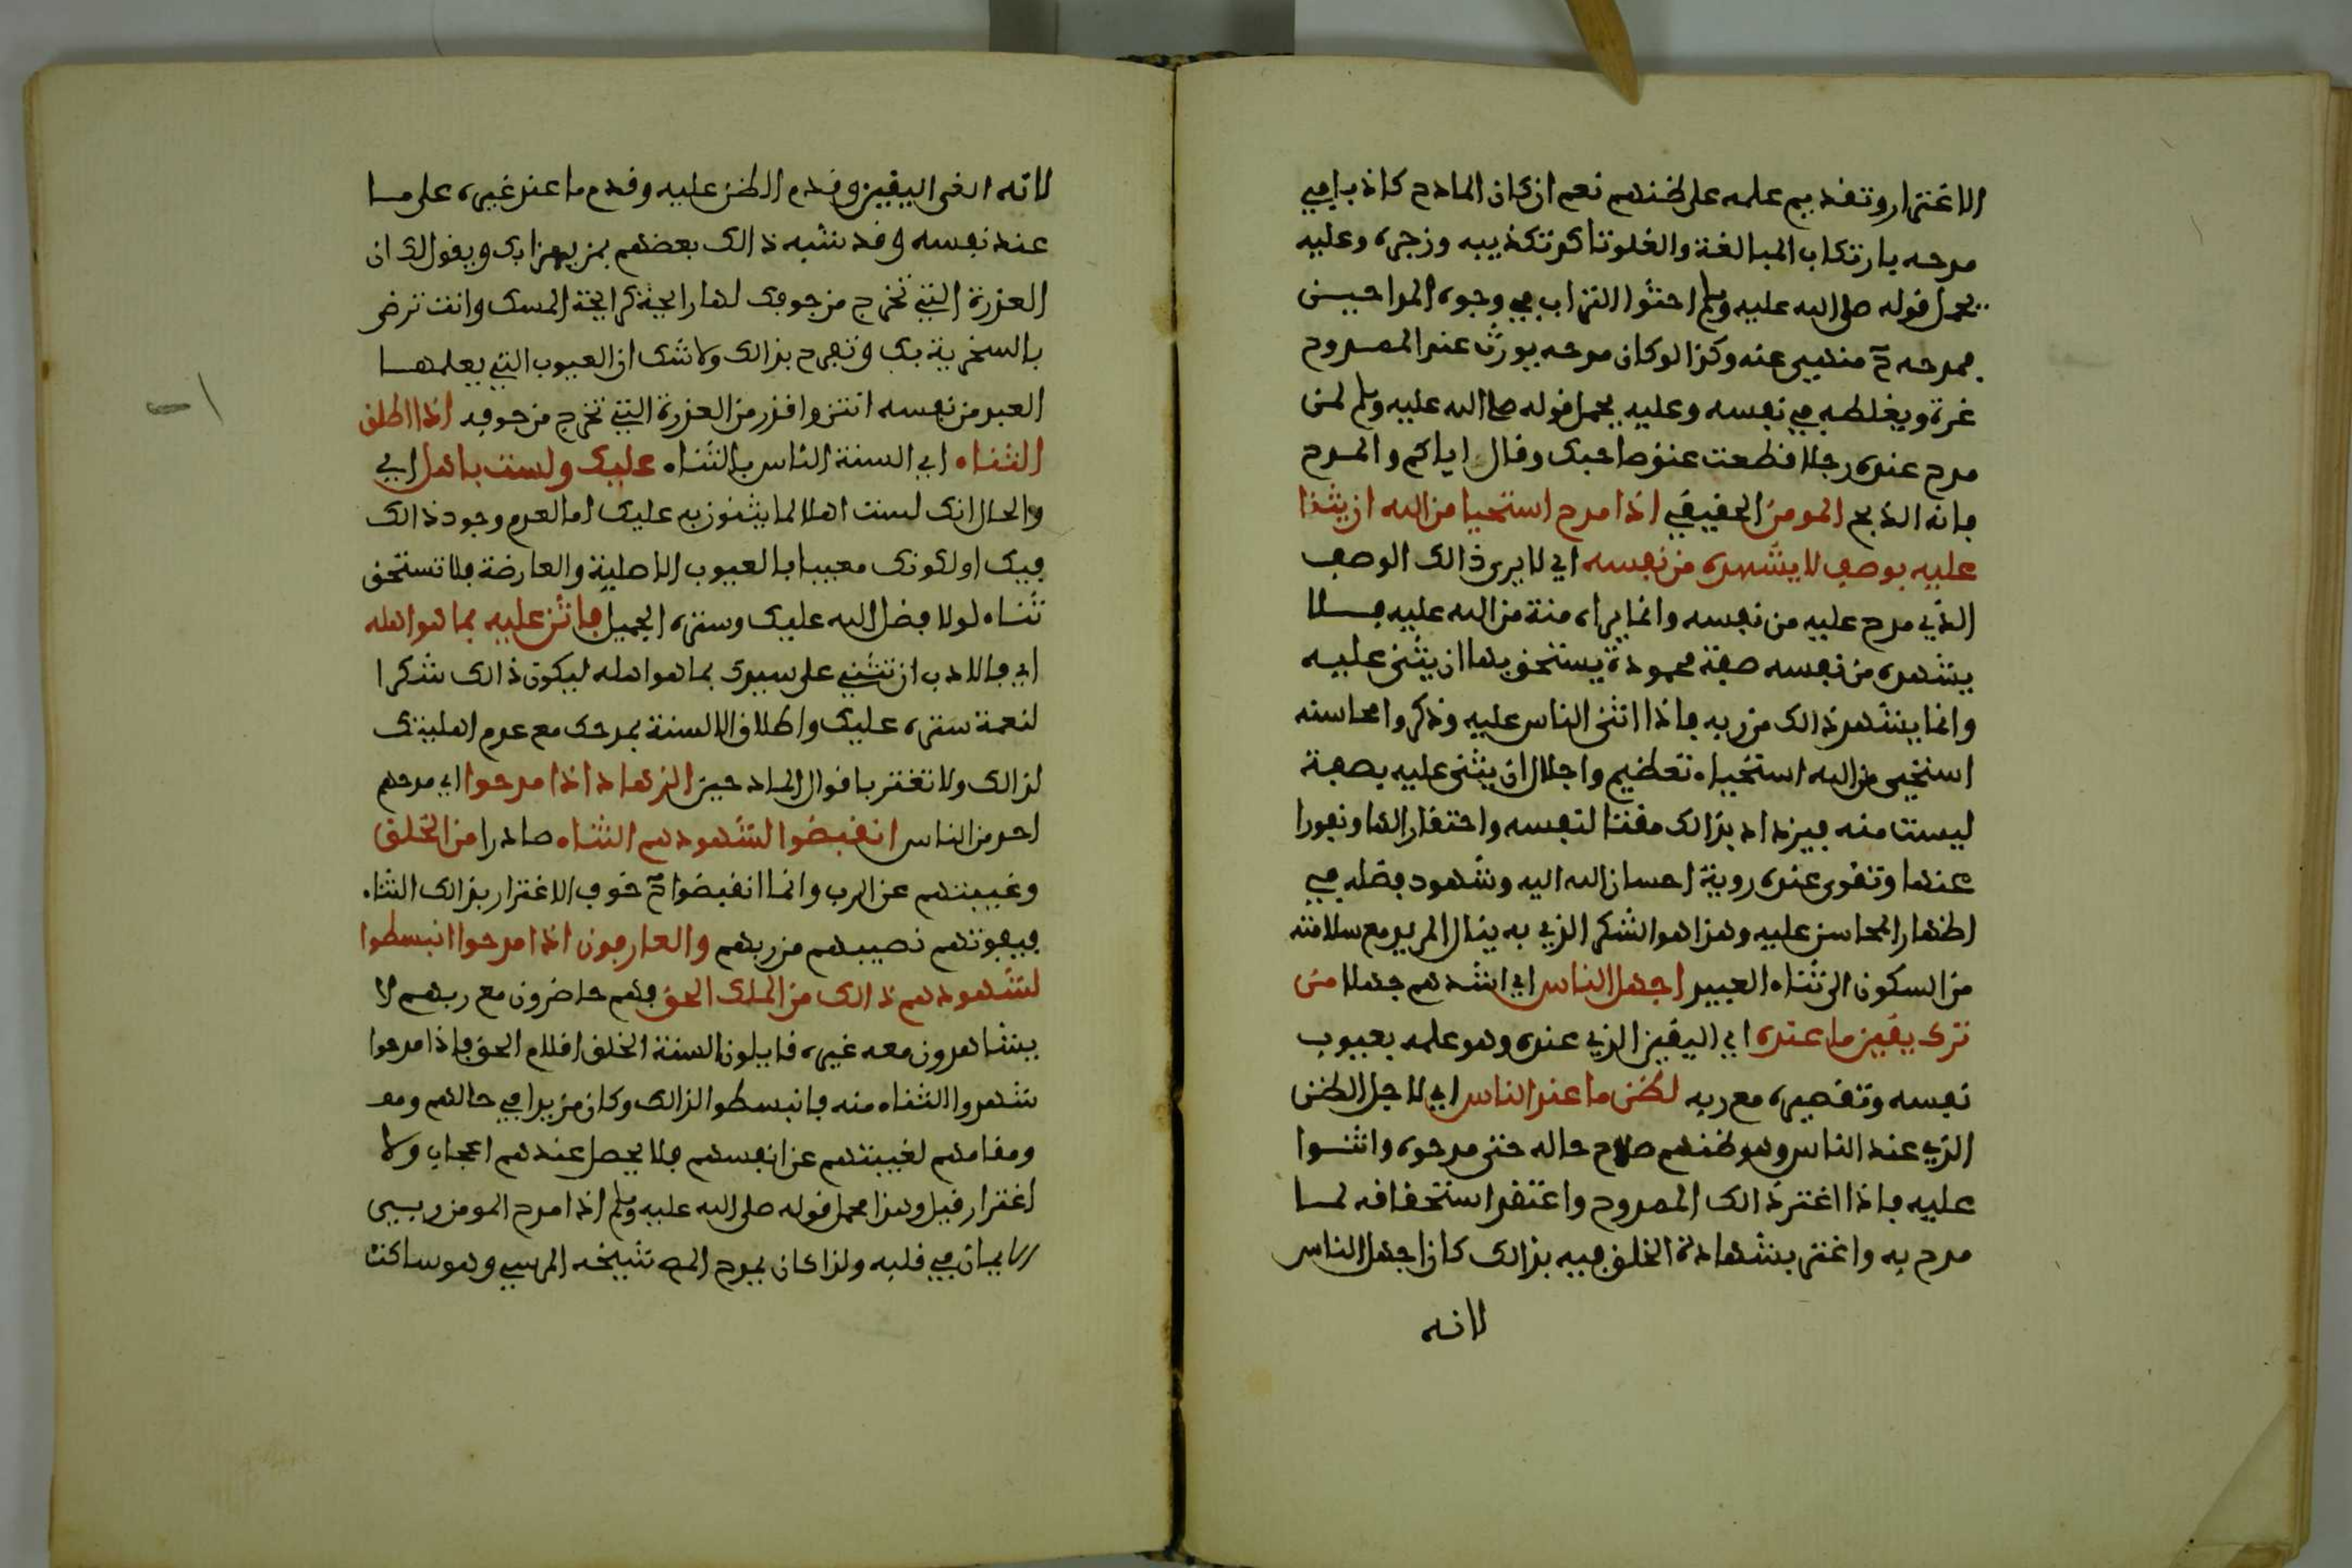 الاغترار وتقديم علمه على ظنهم نعم ان كان المادح كاذبا في
مدحه بارتكاب المبالغة والغلو تاكد تكذيبه وزجره وعليه
يحمل قوله صلى الله عليه وسلم احثوا التراب في وجوه المداحين
فمدحه ح منهي عنه وكذا لو كان مدحه يورث عند الممدوح
غرة ويغلطه في نفسه وعليه يحمل قوله صلى الله عليه وسلم لمن
مدح عنده رجلا قطعت عنق صاحبك وقال اياكم والمدح
فانه الذبح المومن الحقيقي اذا مدح استحيا من الله ان يثنا
عليه بوصف لا يشهده من نفسه اي لا يرى ذالك الوصف
الذي مدح عليه من نفسه وانما يراه منة من الله عليه فلا
يشهد من نفسه صفة محمودة يستحق بها ان يثنى عليه
وانما يشهد ذالك من ربه فاذا اثنى الناس عليه وذكروا محاسنه
استحيى من الله استحياء تعظيم واجلال ان يثنى عليه بصفة
ليست منه فيزداد بذالك مقتا لنفسه واحتقارا لها ونفورا
عنها وتقوى عنده روية احسان الله اليه وشهود فضله في
اظهار المحاسن عليه وهذا هو الشكر الذي به ينال المزيد مع سلامته
من السكون الى ثناء العبيد اجهل الناس اي اشدهم جهلا من
ترك يقين ما عنده اي اليقين الذي عنده وهو علمه بعيوب
نفسه وتقصيره مع ربه لظن ما عند الناس اي لاجل الظن
الذي عند الناس وهو ظنهم صلاح حاله حتى مدحوه واثنوا
عليه فاذا اغتر ذالك الممدوح واعتقد استحقاقه لما
مدح به واغتر بشهادة الخلق فيه بذالك كان اجهل الناس
لانه
لانه الغى اليقين وقدم الظن عليه وقدم ما عند غيره على ما
عند نفسه وقد شبه ذالك بعضهم بمن يهزا بك ويقول لك ان
العذرة التي تخرج من جوفك لها رايحة كرايحة المسك وانت ترضى
بالسخرية بك وتفرح بذالك ولا شك ان العيوب التي يعلمها
العبد من نفسه انتن واقذر من العذرة التي تخرج من جوفه اذا اطلق
الثناء اي السنة الناس بالثناء عليك ولست باهل اي
والحال انك لست اهلا لما يثنون به عليك اما لعدم وجود ذالك
فيك او لكونك معيبا بالعيوب الاصلية والعارضة فلا تستحق
ثناء لولا فضل الله عليك وستره الجميل فاثن عليه بما هو اهله
اي فالادب ان تثني على سيدك بما هو اهله ليكون ذالك شكرا
لنعمة ستره عليك واطلاق الالسنة بمدحك مع عدم اهليتك
لذالك ولا تغتر باقوال المادحين الزهاد اذا مدحوا اي مدحهم
احد من الناس انقبضوا لشهودهم الثناء صادرا من الخلق
وغيبتهم عن الرب وانما انقبضوا ح خوف الاغترار بذالك الثناء
فيفوتهم نصيبهم من ربهم والعارفون اذا مدحوا انبسطوا
لشهودهم ذالك من الملك الحق فهم حاضرون مع ربهم لا
يشاهدون معه غيره قايلون السنة الخلق اقلام الحق فاذا مدحوا
شهدوا الثناء منه فانبسطوا لذالك وكان مزيدا في حالهم ومقا
ومقامهم لغيبتهم عن انفسهم فلا يحصل عندهم اعجاب ولا
اغترار قيل وهذا محمل قوله صلى الله عليه وسلم اذا مدح المومن ربى
الايمان في قلبه ولذا كان يمدح شيخه المرسي وهو ساكت